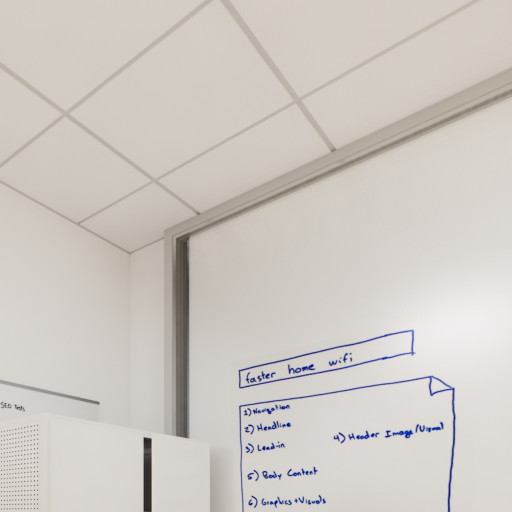 faster home wifi
1) Navigation
2) Headline
3) Lead-in
4) Header Image/Visual
5) Body Content
6) Graphics + Visuals
SEO Tests